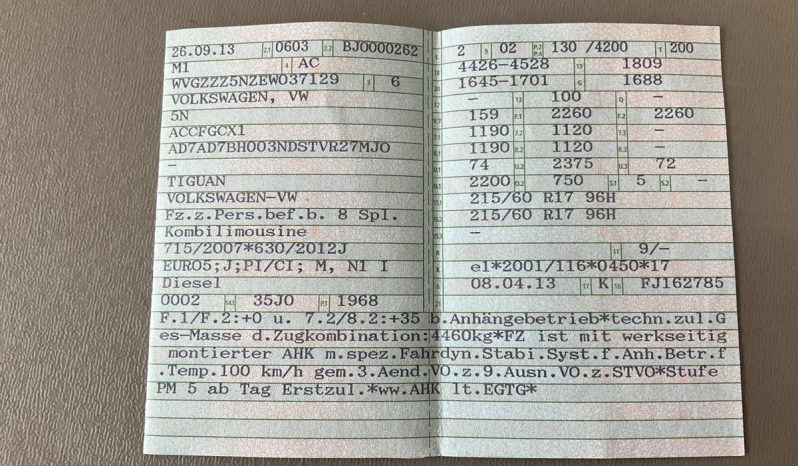 26.09.13 2.1 0603 2.2 BJ0000262
M1 4 AC
WVGZZZ5NZEW037129 3 6
VOLKSWAGEN, VW
5N
ACCFGCX1
AD7AD7BH003NDSTVR27MJO
–
TIGUAN
VOLKSWAGEN-VW
Fz.z.Pers.bef.b. 8 Spl.
Kombilimousine
715/2007*630/2012J
EURO5;J;PI/CI; M, N1 I
Diesel
0002 35J0 P.1 1968
2 9 02 P.2 P.4 130 /4200 T 200
18 4426-4528 19 1809
20 1645-1701 G 1688
12 – 13 100 Q –
V.7 159 F.1 2260 F.2 2260
7.1 1190 7.2 1120 7.3 –
8.1 1190 8.2 1120 8.3 –
U.1 74 U.2 2375 U.3 72
O.1 2200 O.2 750 S.1 5 S.2 –
15.1 215/60 R17 96H
15.2 215/60 R17 96H
15.3 –
R 11 9/-
K e1*2001/116*0450*17
6 08.04.13 17 K 16 FJ162785
21
F.1/F.2:+0 u. 7.2/8.2:+35 b.Anhängebetrieb*techn.zul.G
es-Masse d.Zugkombination:4460kg*FZ ist mit werkseitig
montierter AHK m.spez.Fahrdyn.Stabi.Syst.f.Anh.Betr.f
.Temp.100 km/h gem.3.Aend.VO.z.9.Ausn.VO.z.STVO*Stufe
PM 5 ab Tag Erstzul.*ww.AHK lt.EGTG*